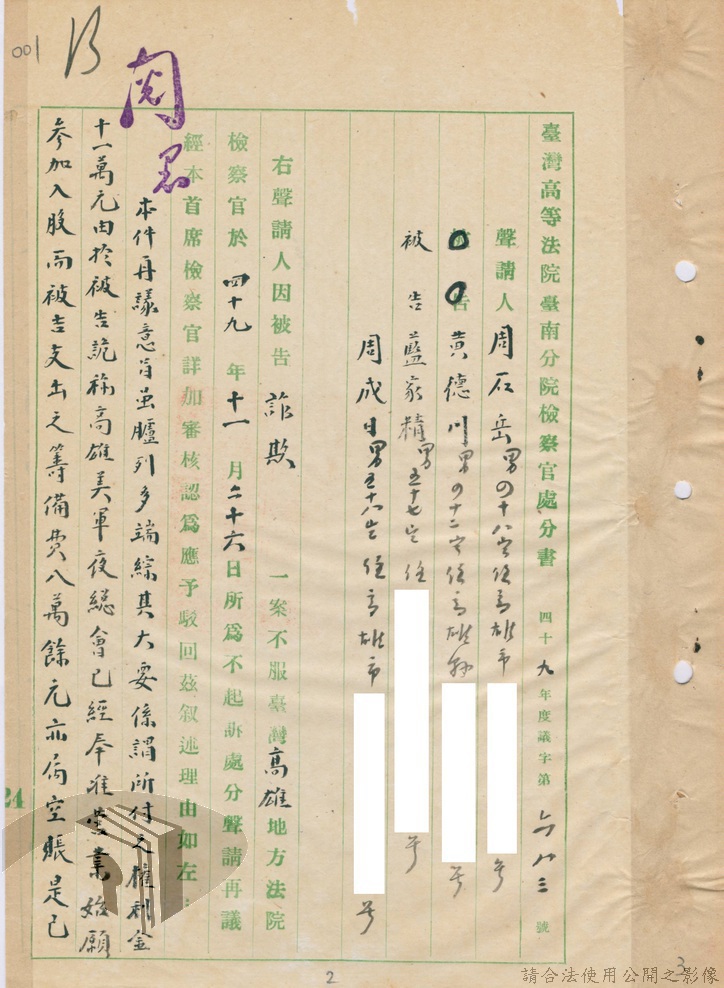 001
臺灣高等法院臺南分院檢察官處分書 四十九年度議字第六八三號
聲請人 周石岳 男四十八歲住高雄市 号
告 黃德川 男四十二歲住高雄縣 号
被告 藍家精 男五十七歲住 号
周成日 男五十六歲住高雄市 号
右聲請人因被告詐欺一案不服臺灣高雄地方法院
檢察官於四十九年十一月二十六日所為不起訴處分聲請再議
經本首席檢察官詳加審核認為應予駁回茲叙述理由如左：
本件再議意旨虽臚列多端綜其大要係謂所付之權利金
十一萬元由於被告詭稱高雄美軍夜總會已經奉准營業始願
參加入股而被告支出之籌備費八萬餘元亦偽空賬是已
24
2
3
請合法使用公開之影像